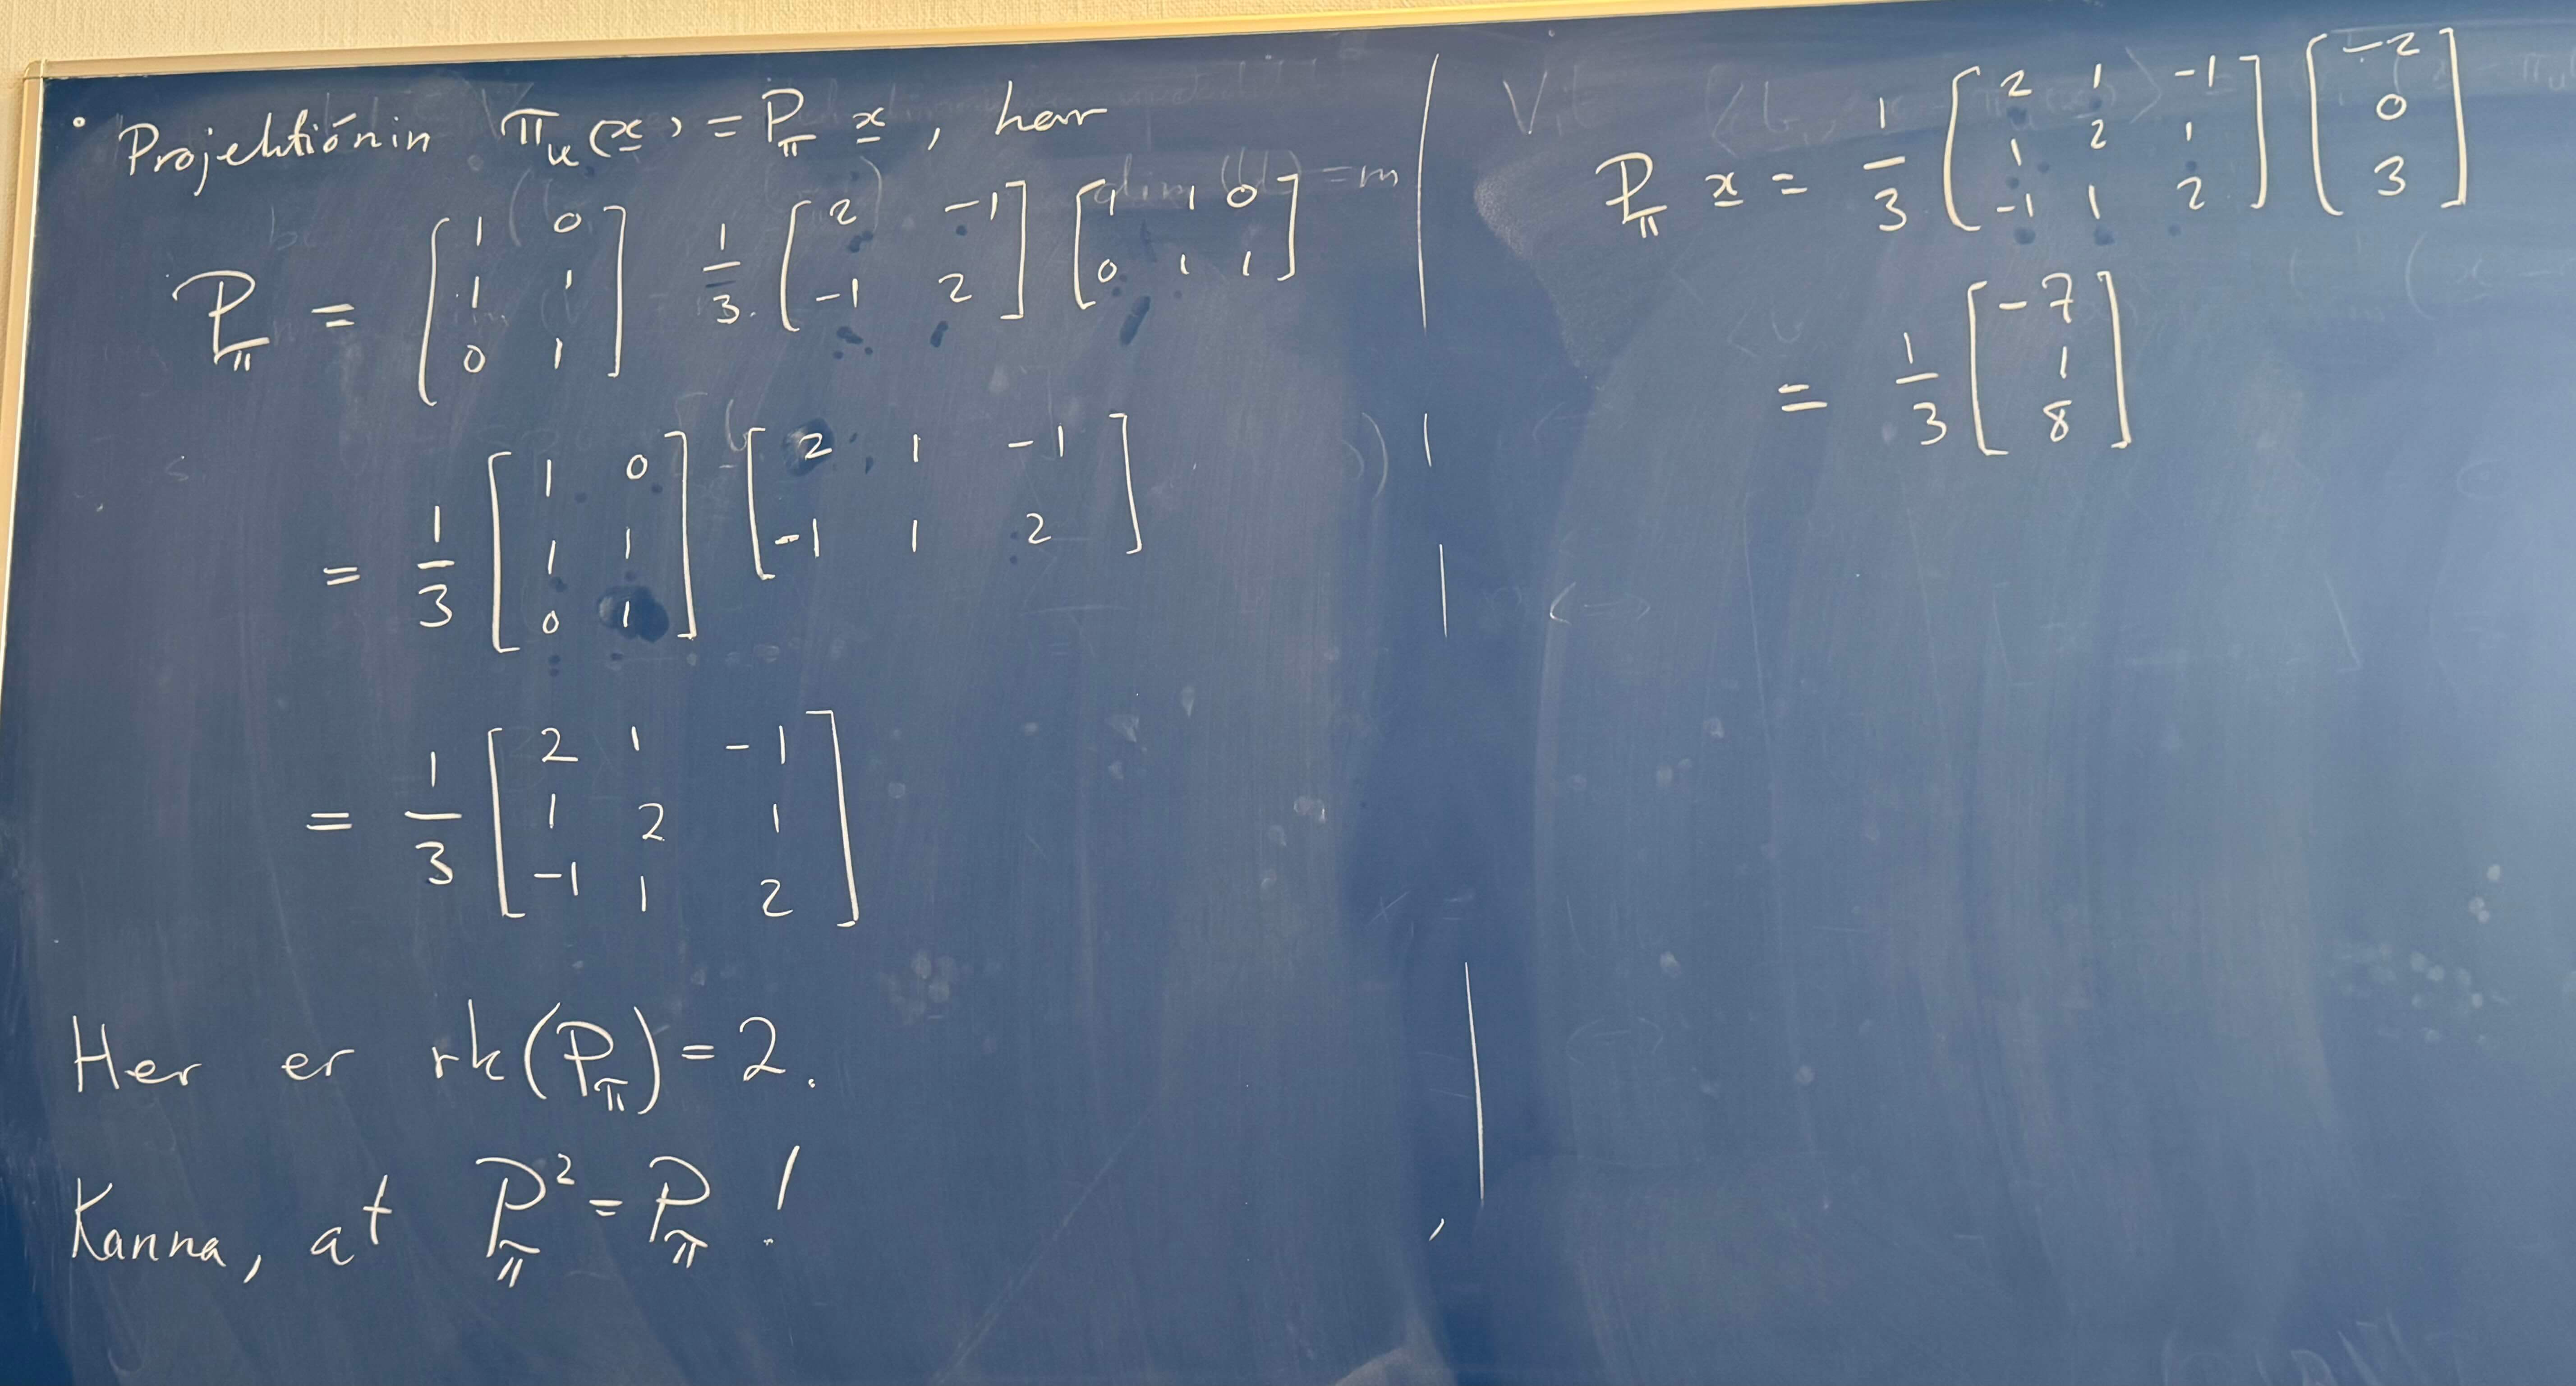 • Projektiónin π_u(x) = P_π x, har
P_π = [1 0; 1 1; 0 1] 1/3 [2 -1; -1 2] [1 1 0; 0 1 1]
= 1/3 [1 0; 1 1; 0 1] [2 1 -1; -1 1 2]
= 1/3 [2 1 -1; 1 2 1; -1 1 2]
Her er rk(P_π) = 2.
Kanna, at P_π² = P_π!
P_π x = 1/3 [2 1 -1; 1 2 1; -1 1 2] [-2; 0; 3]
= 1/3 [-7; 1; 8]